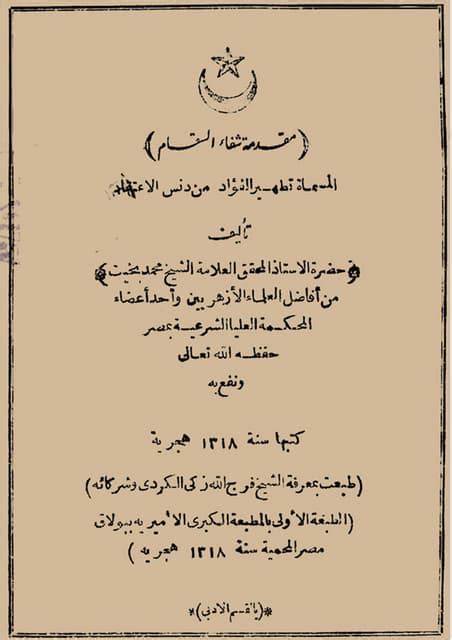 (مقدمة شفاء السقام)
المسماة تطهير الفؤاد من دنس الاعتقاد
تأليف
حضرة الاستاذ المحقق العلامة الشيخ محمد بخيت
من أفاضل العلماء الأزهريين وأحد أعضاء
المحكمة العليا الشرعية بمصر
حفظه الله تعالى
ونفع به
كتبها سنة ١٣١٨ هجرية
(طبعت بمعرفة الشيخ فرج الله زكى الكردى وشركائه)
(الطبعة الأولى بالمطبعة الكبرى الأميريه ببولاق
مصر المحمية سنة ١٣١٨ هجريه)
*(بالقسم الادبى)*